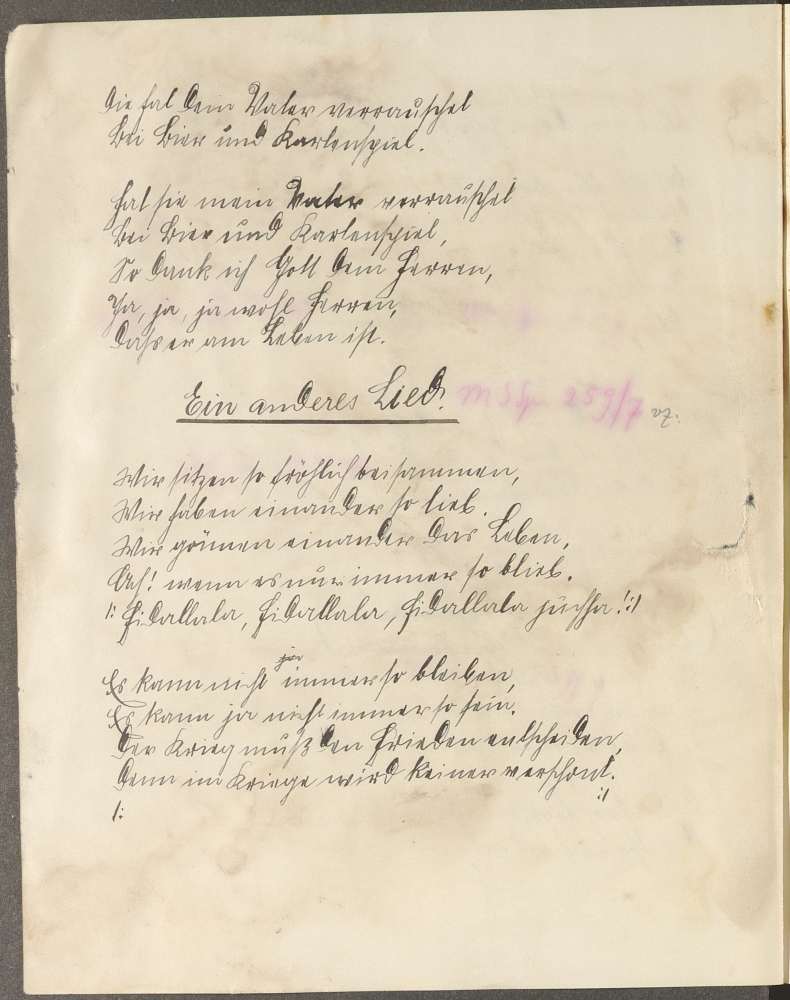 Die hat Dein Vater verrauschet
Bei Bier und Kartenspiel.
Hat sie mein Vater verrauschet
Bei Bier und Kartenspiel,
So dank ich Gott dem Herren,
Ja, ja, ja wohl Herren,
Dass er am Leben ist.
Ein anderes Lied. 259/7
Wir sitzen so fröhlich beisammen,
Wir haben einander so lieb.
Wir gönnen einander das Leben,
Ach! wenn es nur immer so blieb.
|: Fidallala, Fidallala, Fidallala juchha! :|
ja
Es kann nicht immer so bleiben,
Es kann ja nicht immer so sein.
Der Krieg muß den Frieden entscheiden,
Denn im Kriege wird keiner verschont.
|: :|